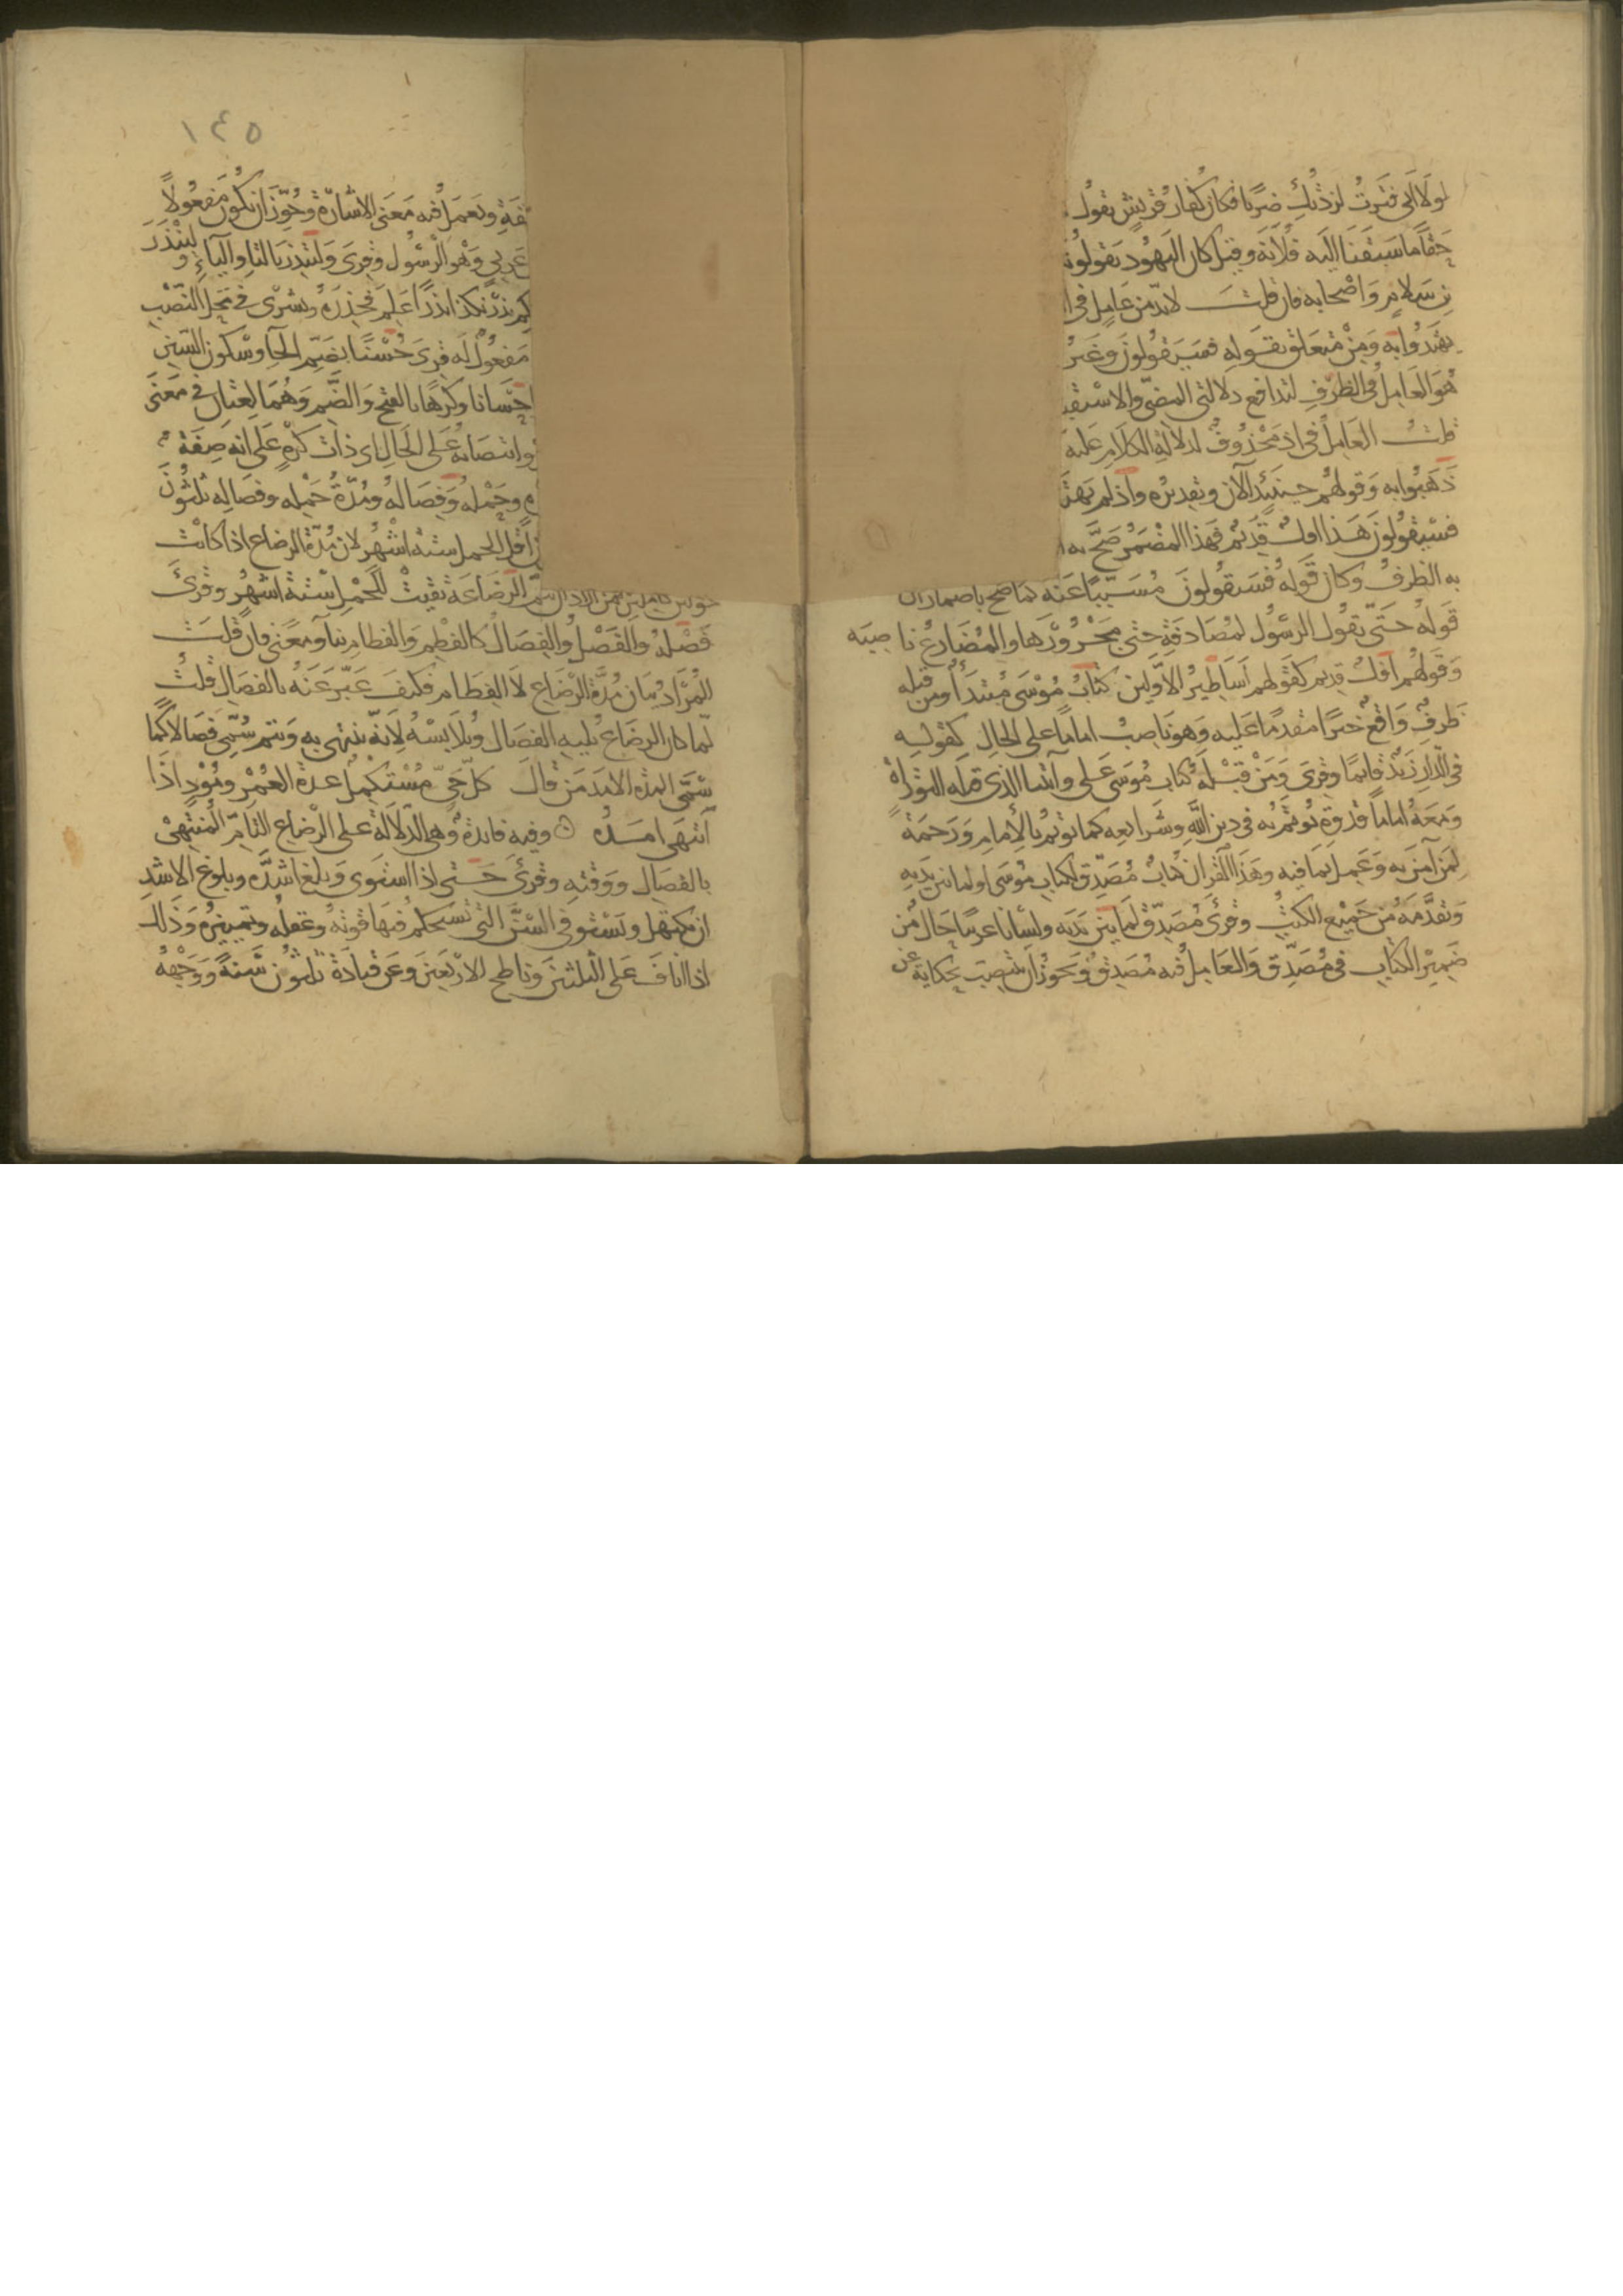 لولا اني فترت لزدتك ضربا فكان كفار قريش تقول
حقا ما سبقنا اليه فلانة وقيل كان اليهود يقولونه
بن سلام واصحابه فان قلت لابد من عامل في
يهتدوا به ومن متعلق بقوله فسيقولون وغير
هو العامل في الظرف لتدافع دلالتي المضي والاستقبا
قلت العامل في اذ محذوف لدلالة الكلام عليه
ذهبوا به وقولهم حينئذ الآن وتقديره واذ لم يهتد
فسيقولون هذا افك قديم فهذا المضمر صح به ا
به الظرف وكان قوله فسيقولون مسببا عنه كما صح باضمار ان
قوله حتى يقول الرسول لمصادفة حتى مجرورها والمضارع ناصبه
وقولهم افك قديم كقولهم اساطير الاولين كتاب موسى مبتدأ ومن قبله
ظرف واقع خبرا مقدما عليه وهو ناصب اماما على الحال كقوله
في الدار زيد قائما وقرى ومن قبله كتاب موسى على وآتينا الذي قبله التوراة
ومعه اماما قدوة يؤتم به في دين الله وشرايعه كما يؤتم بالامام ورحمة
لمن آمن به وعمل بما فيه وهذا القرآن كتاب مصدق لكتاب موسى او لما بين يديه
وتقدمه من جميع الكتب وقرئ مصدق لما بين يديه ولسانا عربيا حال من
ضمير الكتاب في مصدق والعامل فيه مصدق ويجوز ان ينتصب حكاية عن
١٤٥
بصفة ويعمل فيه معنى الاشارة وجوز ان يكون مفعولا
عربي وهو الرسول وقرى ولتنذر بالتا والياء ولينذر
كم نذر ينذر اذا علم فحذره وبشرى في محل النصب
مفعول له قرى حسنا بضم الحا وسكون السين
احسانا وكرها بالفتح والضم وهما لغتان في معنى
وانتصابه على الحال اي ذات كره على انه صفة
وحمله وفصاله ومدة حمله وفصاله ثلثون
ان اقل الحمل ستة اشهر لان مدة الرضاع اذا كانت
حولين كاملين لمن اراد ان يتم الرضاعة بقيت للحمل ستة اشهر وقرئ
فصله والفصل والفصال كالفطم والفطام بناء ومعنى فان قلت
المراد بيان مدة الرضاع لا الفطام فكيف عبر عنه بالفصال قلت
لما كان الرضاع يليه الفصال ويلابسه لانه ينتهي به ويتم سمي فصالا كما
سمى المدة الامد من قال كل حي مستكمل عدة العمر ومود اذا
انتهى امده ۞ وفيه فايدة وهي الدلالة على الرضاع التام المنتهي
بالفصال ووقته وقرئ حتى اذا استوى وبلغ اشده وبلوغ الاشد
ان يكتهل ويستوفي السن التي تستحكم فيها قوته وعقله وتمييزه وذلك
اذا اناف على الثلثين وناطح الاربعين وعن قتادة ثلثون سنة ووجهه